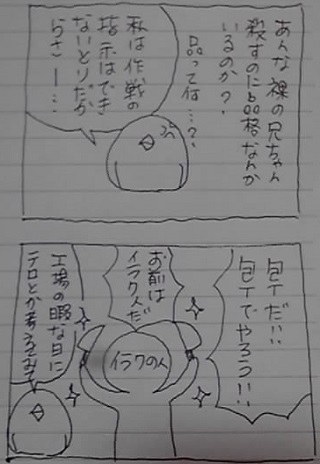 あんな裸の兄ちゃん
殺すのに品格なんか
いるのか?
品って何…?
私は作戦の
指示はでき
ないとりだか
らさー…
包丁だ!!
包丁でやろう!!
お前は
イラク人だ
イラクの人
工場の暇な日に
テロとか考えるみ